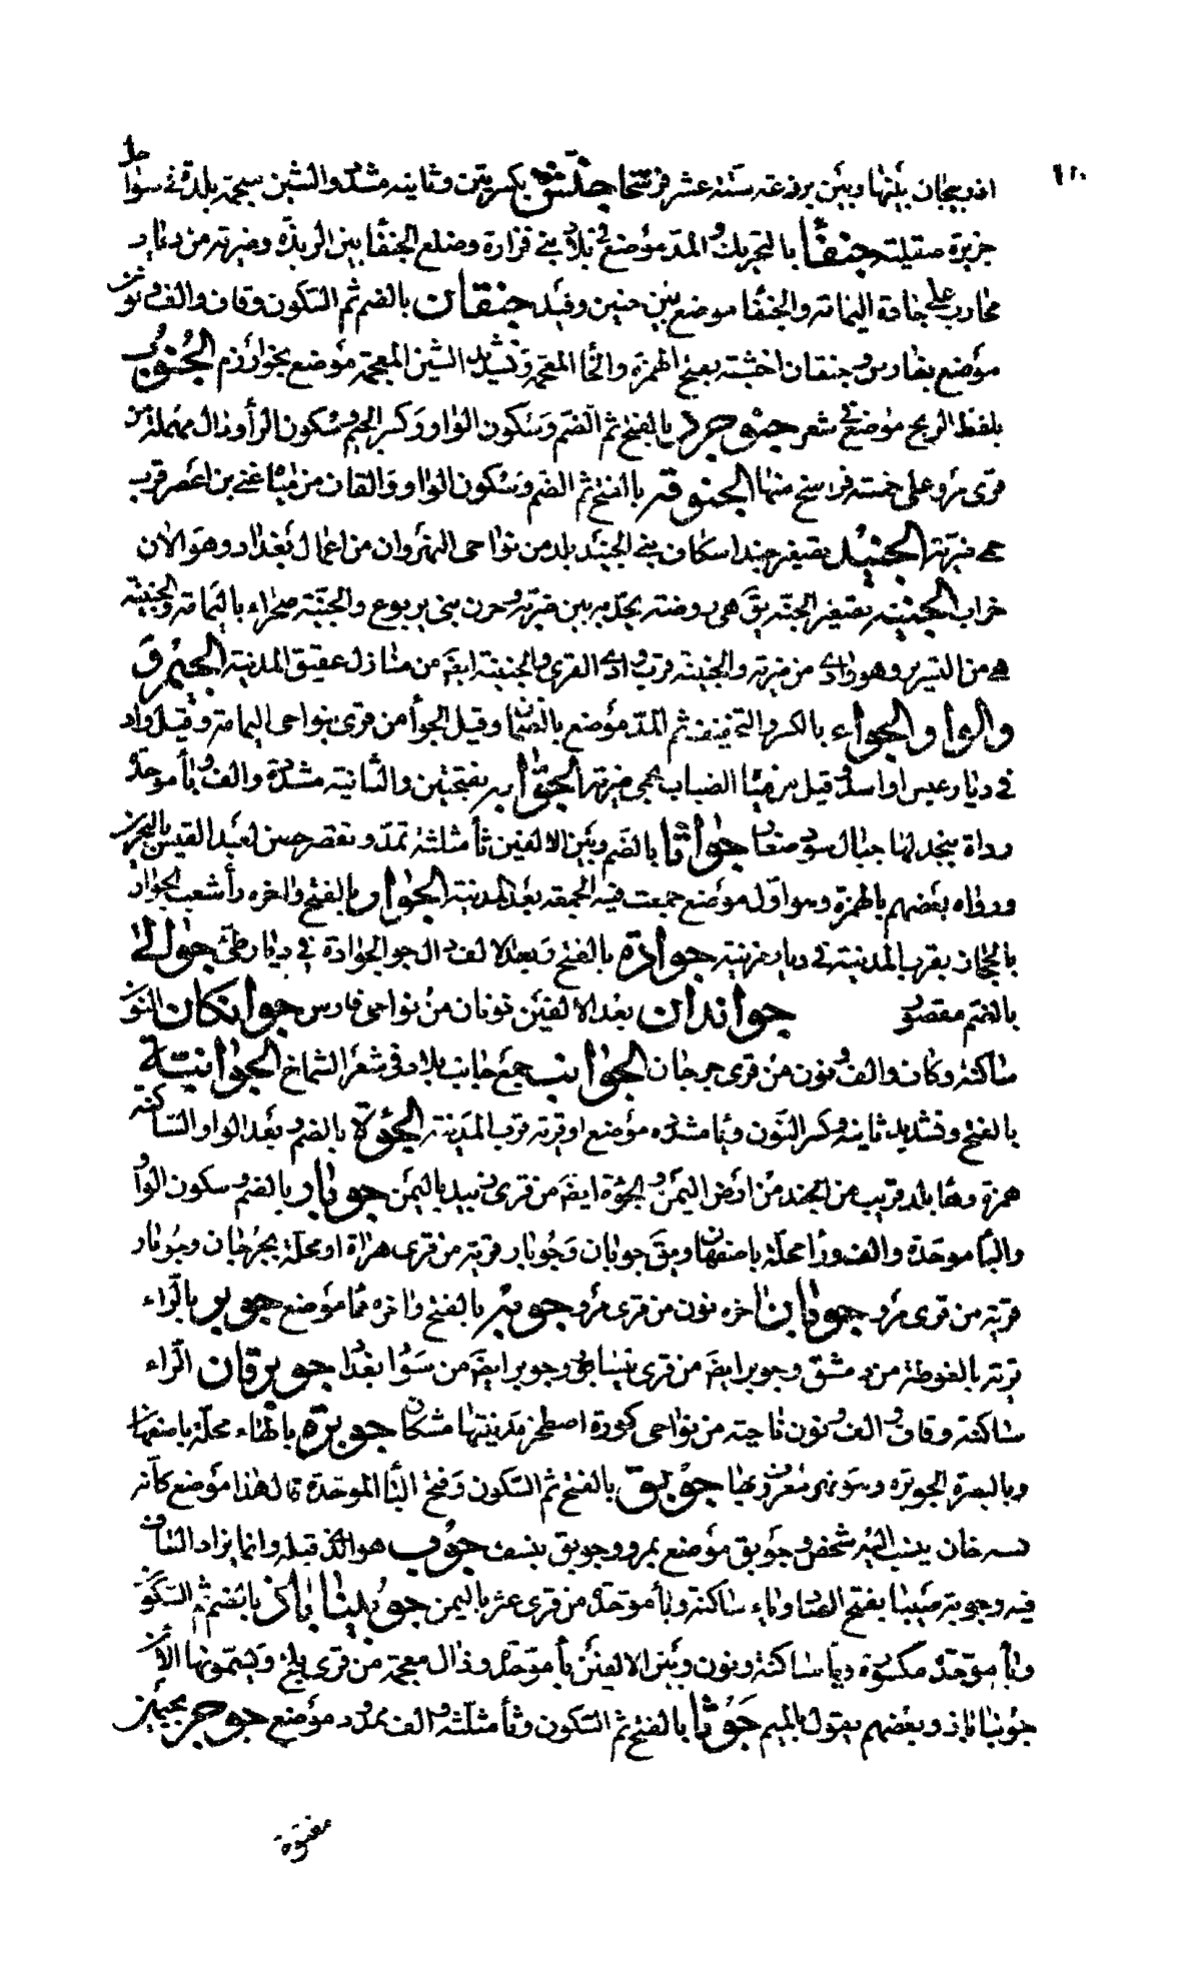 ١١٠
اذربيجان بينها وبين برذعة ستة عشر فرسخا جنش بكسرتين وثانيه مشدد والشين معجمة بلدة في سواحل
جزيرة صقيلية جنفا بالتحريك والمد موضع في بلاد بني فزارة وضلع الجنفا بين الربذة وضرية من ديار
محارب على جادة اليمامة والجنفا موضع بين حنين وفيد جنقان بالضم ثم السكون وقاف والف ونون
موضع بفارس وجنقان اخشة بفتح الهمزة والخا المعجمة وتشديد الشين المعجمة موضع بخوارزم الجنوب
بلفظ الريح موضع في شعر جنوجرد بالفتح ثم الضم وسكون الواو وكسر الجيم وسكون الرأ ودال مهملة من
قرى مرو على خمسة فراسخ منها الجنوقة بالفتح ثم الضم وسكون الواو والقاف من مياه غني بن اعصر قرب
حمى ضرية الجنيد تصغير جند اسكاف بني الجنيد بلد من نواحى النهروان من اعمال بغداد وهو الان
خراب الجنينة تصغير الجنة يق هى روضة نجدية بين ضرية وحزن بنى يربوع والجنينة صحراء باليمامة والجنينة
هى من التسرير وهو وادي من ضرية والجنينة قرب وادي القرى والجنينة ايضا من منازل عقيق المدينة الجيم
والواو الجواء بالكسر والتخفيف ثم المد موضع بالصمان وقيل الجوأ من قرى بنواحى اليمامة وقيل واد
في ديار عبس او اسد قيل من مياه الضباب بحمى ضرية الجوابة بفتحتين والثانية مشددة والف وبأ موحدة
رداة بنجد لها جبال سود صغار جواثا بالضم وبين الالفين ثأ مثلثة تمد وتقصر حصن لعبد القيس بالبحرين
ورواه بعضهم بالهمزة وهو اول موضع جمعت فيه الجمعة بعد المدينة الجوار بالفتح واخره رأ شعب الجوار
بالحجاز بقرب المدينة في ديار مزينة جوادة بالفتح وبعد الالف دال جو الجوادة في ديار طي جوالى
بالضم مقصور جواندان بعد الالفين نونان من نواحى فارس جوانكان النون
ساكنة وكاف والف ونون من قرى جرجان الجوانب جمع جانب بلاد في شعر الشماخ الجوانية
بالفتح وتشديد ثانيه وكسر النون وياء مشدده موضع او قرية قرب المدينة الجوءة بالضم وبعد الواو الساكنة
همزة وها بلد قريب من الجند من ارض اليمن والجوءة ايضا من قرى زبيد باليمن جوبار بالضم وسكون الواو
والبأ موحدة والف ورا محلة باصفهان ويق جوبان وجوبار قرية من قرى هراة او محلة بجرجان وجوبار
قرية من قرى مرو جوبان اخره نون من قرى مرو جوبر بالفتح واخره موضع جوبر بالراء
قرية بالغوطة من دمشق وجوبر ايضا من قرى نيسابور وجوبر ايضا من سواد بغداد جوبرقان الراء
ساكنة وقاف والف ونون ناحية من نواحى كورة اصطخر مدينتها مشكان جوبرة بالهاء محلة باصفهان
وبالبصرة الجوبرة وهو نهر معروف بها جوبق بالفتح ثم السكون وفتح البأ الموحدة قال هذا موضع كانه
خان ينسب اليه شخص وجوبق موضع بمرو وجوبق بنسف جوب هو الذي قبله وانما يزاد القاف
فيه وجوبة صيبا بفتح الصاد وياء ساكنة وبأ موحدة من قرى عثر باليمن جوبيناباذ بالضم ثم السكون
وبأ موحدة مكسورة ويا ساكنة ونون وبين الالفين بأ موحدة وذال معجمة من قرى بلخ ويسمونها الان
جوبناباذ وبعضهم يقول بالميم جوثا بالفتح ثم السكون وثأ مثلثة والف ممدود موضع جوجر بجيمين
مفتوحة